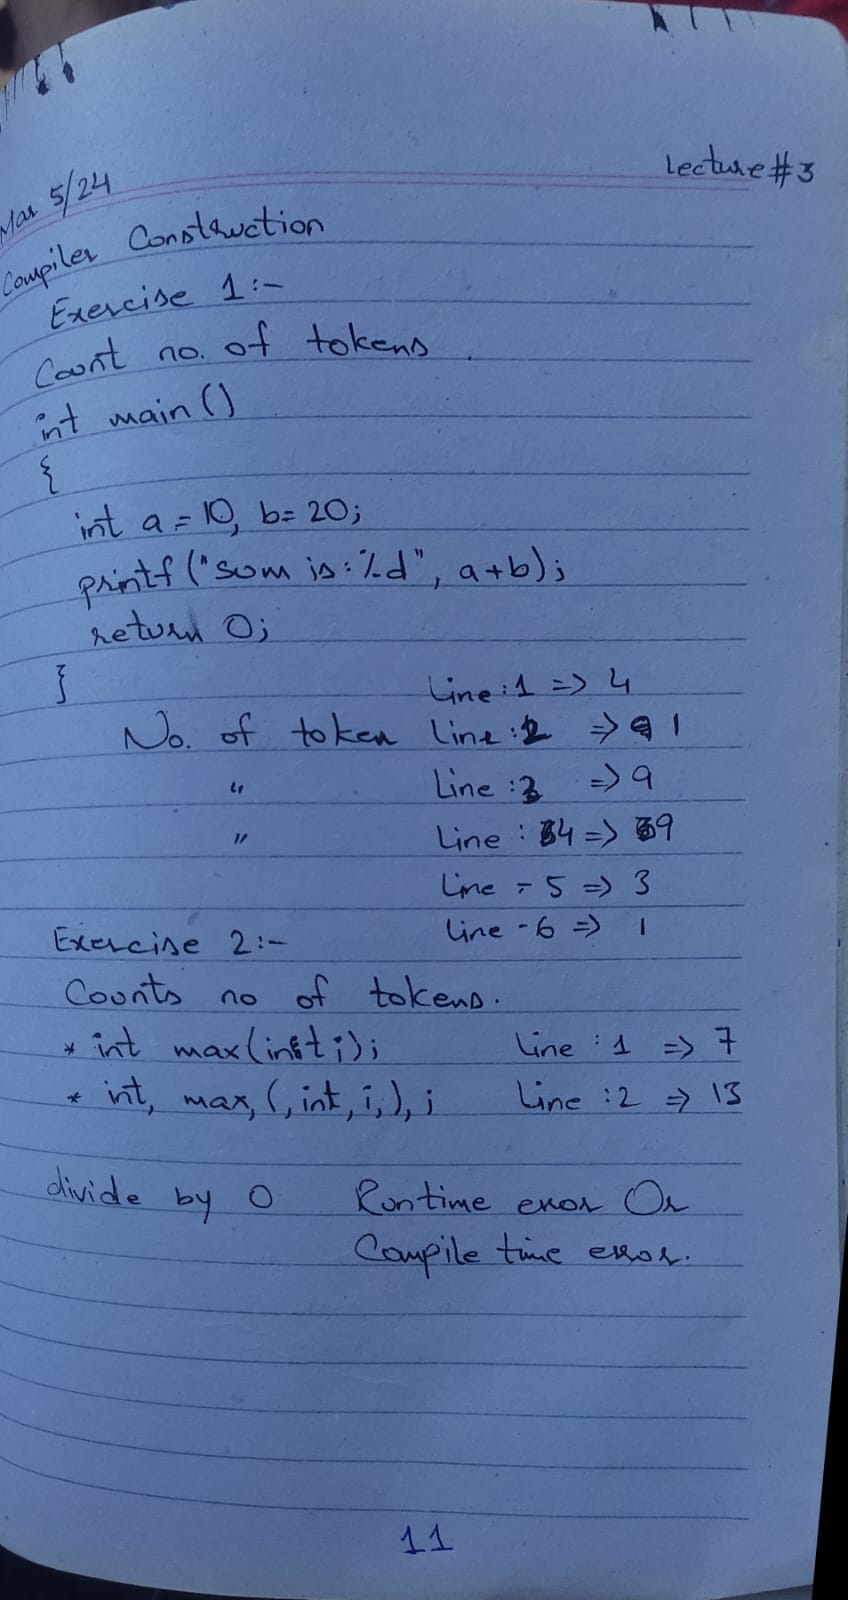 Lecture #3
Mar 5/24
Compiler Construction
Exercise 1:-
Count no. of tokens
int main ()
{
int a = 10, b= 20;
printf ("sum is: %d", a+b);
return 0;
}
Line:1 => 4
No. of token Line:2 => 1
" Line :3 => 9
" Line : 4 => 9
Line - 5 => 3
Line - 6 => 1
Exercise 2:-
Counts no of tokens.
* int max(int i); Line : 1 => 7
* int, max, (, int, i, ), ; Line : 2 => 13
divide by 0 Runtime error Or
Compile time error.
11